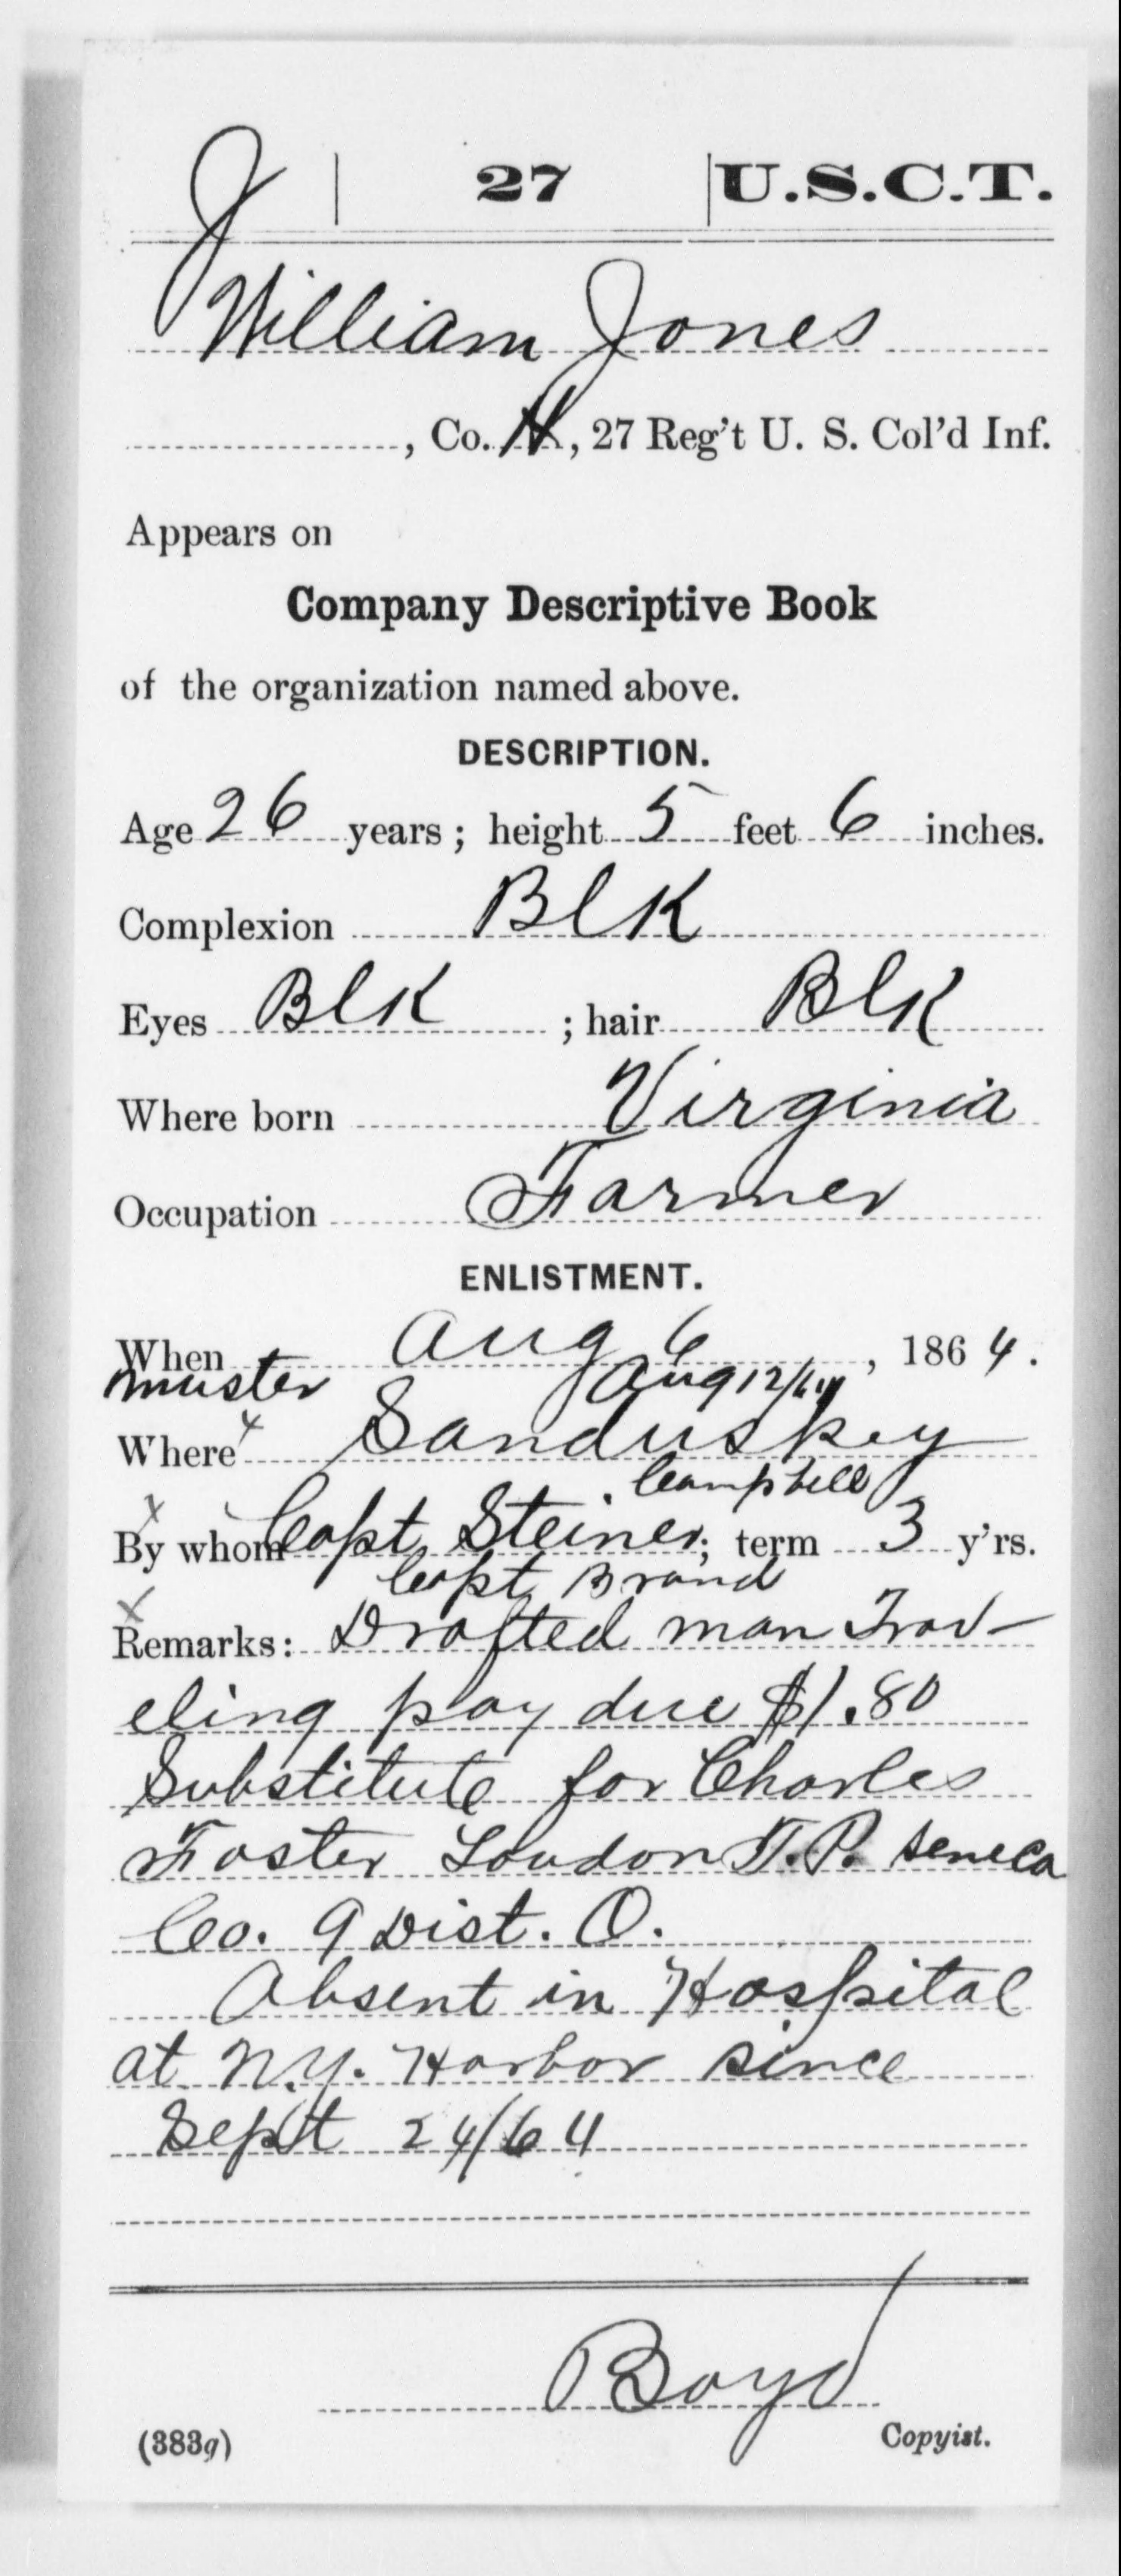 J | 27 | U.S.C.T.
William Jones
, Co. H, 27 Reg't U. S. Col'd Inf.
Appears on
Company Descriptive Book
of the organization named above.
DESCRIPTION.
Age 26 years; height 5 feet 6 inches.
Complexion Blk
Eyes Blk ; hair Blk
Where born Virginia
Occupation Farmer
ENLISTMENT.
When Aug 6, 1864.
muster Aug 12/64
Where x Sanduskey
Campbell
x By whom Capt Steiner; term 3 y'rs.
Capt. Brand
x Remarks: Drafted man Trav-
eling pay due $1.80
Substitute for Charles
Foster Loudon T.P. Seneca
Co. 9 Dist. O.
Absent in Hospital
at N.Y. Harbor since
Sept 24/64
Boyd
(383g) Copyist.